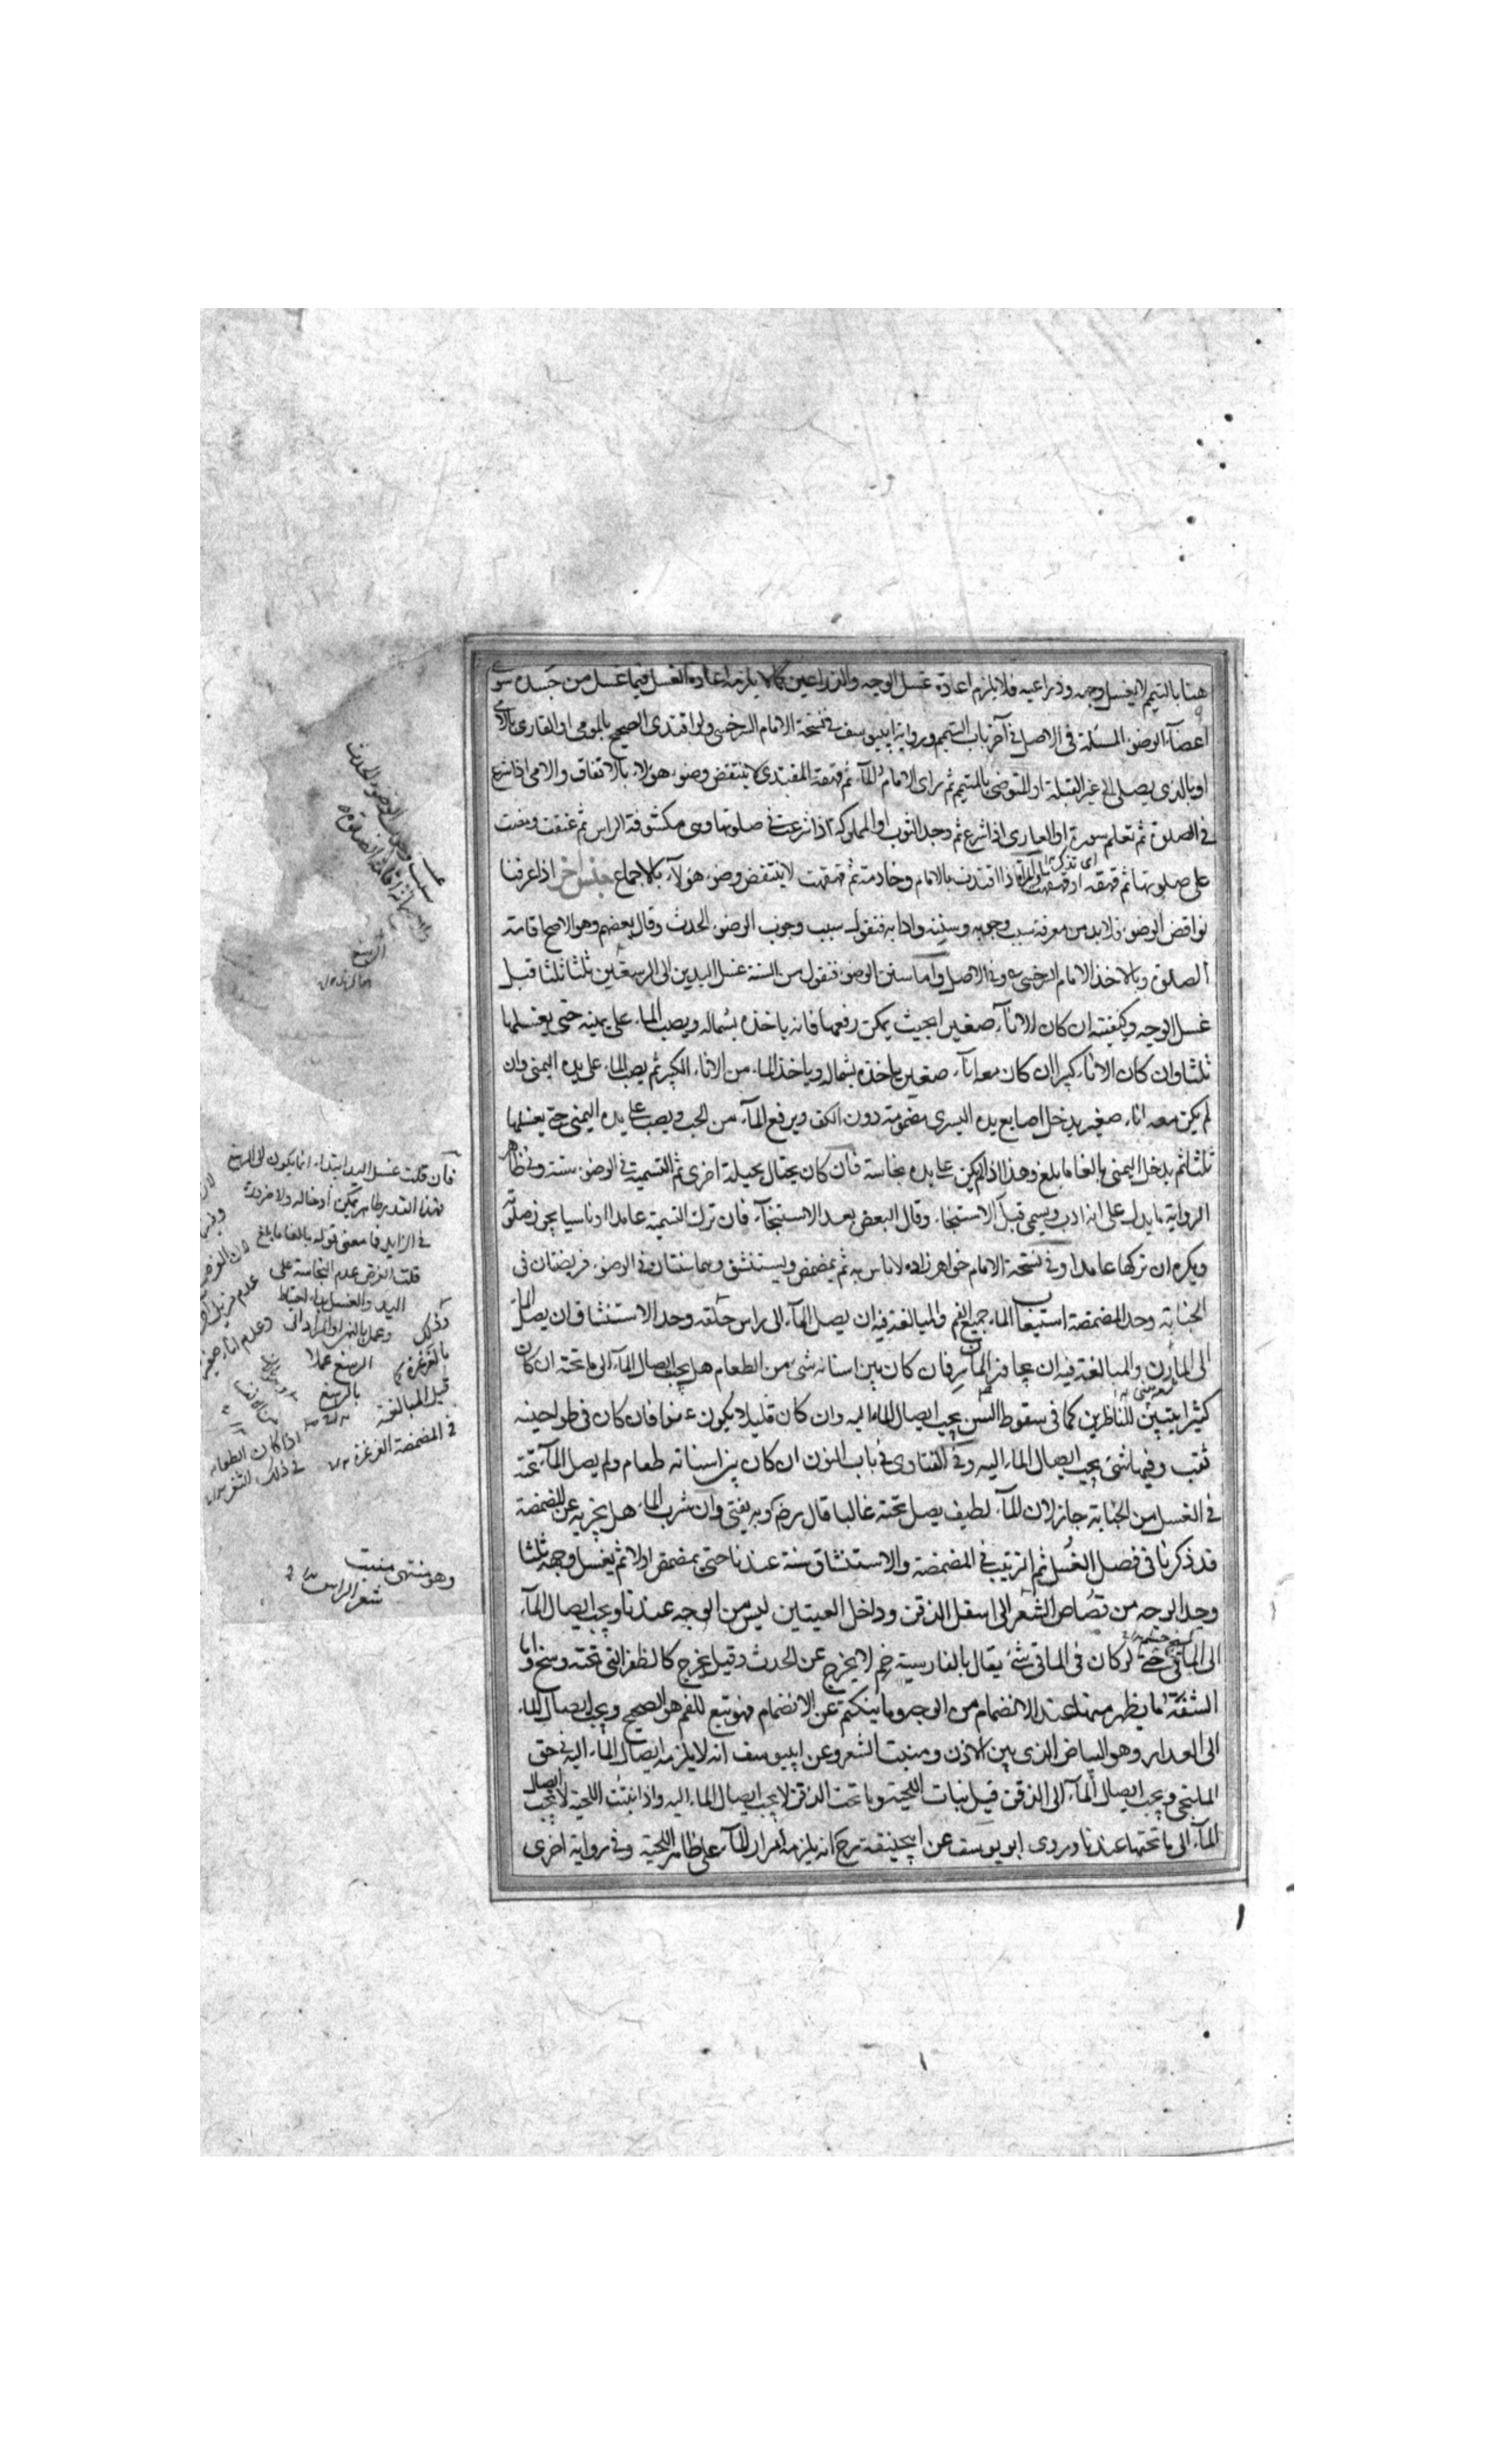 هنا بالتيمم لا بغسل وجهه وذراعيه فلا يلزم اعادة غسل الوجه والذراعين كما لا يلزمه اعادة الغسل فيما غسل من جسده سوى
اعضآء الوضوء المسئلة فى الاصل فى آخر باب التيمم ورواية ابيوسف فى نسخة الامام السرخسى ولو اقتدى الصحيح بالمومى او القارى بالامى
او بالذى يصلى الى غير القبلة او المتوضى بالمتيمم ثم راى الامام المآء ثم قهقهة المقتدى لا ينتقض وضوء هولاء بالاتفاق والامى اذا شرع
فى الصلوة ثم تعلم سورة او العارى اذا شرع ثم وجد الثوب او المملوكة اذا شرعت فى صلوتها وهى مكشوفة الراس ثم عتقت ومضت
على صلوتها ثم قهقه او قهقهت المراة اذا اقتدت بالامام وخادمته ثم قهقهت لا ينتقض وضوء هولآء بالاجماع جنس آخر اذا عرفنا
نواقض الوضوء فلا بد من معرفة سبب وجوبه وسننه وادابه فنقول سبب وجوب الوضوء الحدث وقال بعضهم وهو الاصح اقامة
الصلوة وبه اخذ الامام السرخسى وفى الاصل واما سنن الوضوء فنقول من السنة غسل اليدين الى الرسغين ثلثا ثلثا قبل
غسل الوجه وكيفيته ان كان الانآء صغيرا بحيث يمكن رفعها فانه ياخذه بشماله ويصب الماء على يمينه حتى يغسلها
ثلثا وان كان الاناء كبيرا ان كان معه انآء صغير ياخذه بشماله وياخذ الماء من الاناء الكبير ثم يصب الماء على يده اليمنى وان
لم يكن معه اناء صغير يدخل اصابع يده اليسرى مضمومة دون الكف ويرفع المآء من الحب ويصب على يده اليمنى حتى يغسلها
ثلثا ثم يدخل اليمنى بالغا ما بلغ وهذا اذا لم يكن على يده نجاسة فان كان يحتال بحيلة اخرى ثم التسمية فى الوضوء سنة وفى ظاهر
الرواية ما يدل على انه ادب ويسمى قبل الاستنجاء وقال البعض بعد الاستنجآء فان ترك التسمية عامدا او ناسيا يجوز صلوته
ويكره ان تركها عامدا وفى نسخة الامام خواهر زاده لا باس به ثم يمضمض ويستنشق وهما سنتان فى الوضوء فريضتان فى
الجنابة وحد المضمضة استيعاب الماء جميع الفم والمبالغة فيه ان يصل المآء الى راس حلقه وحد الاستنشاق ان يصل الماء
الى المارن والمبالغة فيه ان يجاوز المارن فان كان بين اسنانه شىء من الطعام هل يجب ايصال المآء الى ما تحته ان كان
كثيرا يتبين للناظرين كما فى سقوط السن يجب ايصال الماء اليه وان كان قليلا يكون عفوا فان كان فى طواحينه
ثقب وفيها شىء يجب ايصال الماء اليه وفى الفتاوى فى باب النون ان كان بين اسنانه طعام ولم يصل المآء تحته
فى الغسل من الجنابة جاز لان المآء لطيف يصل تحته غالبا قال رض وبه يفتى وان شرب الماء هل يجزيه عن المضمضة
قد ذكرنا فى فصل الغسل ثم الترتيب فى المضمضة والاستنشاق سنة عندنا حتى يمضمض اولا ثم يغسل وجهه ثلثا
وحد الوجه من قصاص الشعر الى اسفل الذقن وداخل العينين ليس من الوجه عندنا ويجب ايصال المآء
الى الماقى حتى لو كان فى الماقى شىء يقال بالفارسية خم لا يخرج عن الحدث وقيل يخرج كالظفر التى تحته وسخ واما
الشفة ما يظهر منها عند الانضمام من الوجه وما ينكتم عن الانضمام فهو تبع للفم هو الصحيح ويجب ايصال الماء
الى العذار وهو البياض الذى بين الاذن ومنبت الشعر وعن ابيوسف انه لا يلزمه ايصال الماء اليه فى حق
الملتحى ويجب ايصال المآء الى الذقن قبل نبات اللحية وما تحت الذقن لا يجب ايصال الماء اليه واذا نبتت اللحية لا يجب ايصال
المآء الى ما تحتها عندنا وروى ابو يوسف عن ابيحنيفة رح انه يلزمه امرار المآء على ظاهر اللحية وفى رواية اخرى
الرسغ
فان قلت غسل اليد ابتداء انما يكون الى الرسغ
فهذا القدر طاهر يمكن ادخاله ولا ضرورة
فى الزايد فما معنى قوله بالغا ما بلغ
قلت الغرض عدم النجاسة على
اليد والغسل
قيل المبالغة
فى المضمضة الغرغرة
وهو منتهى منبت
شعر الراس